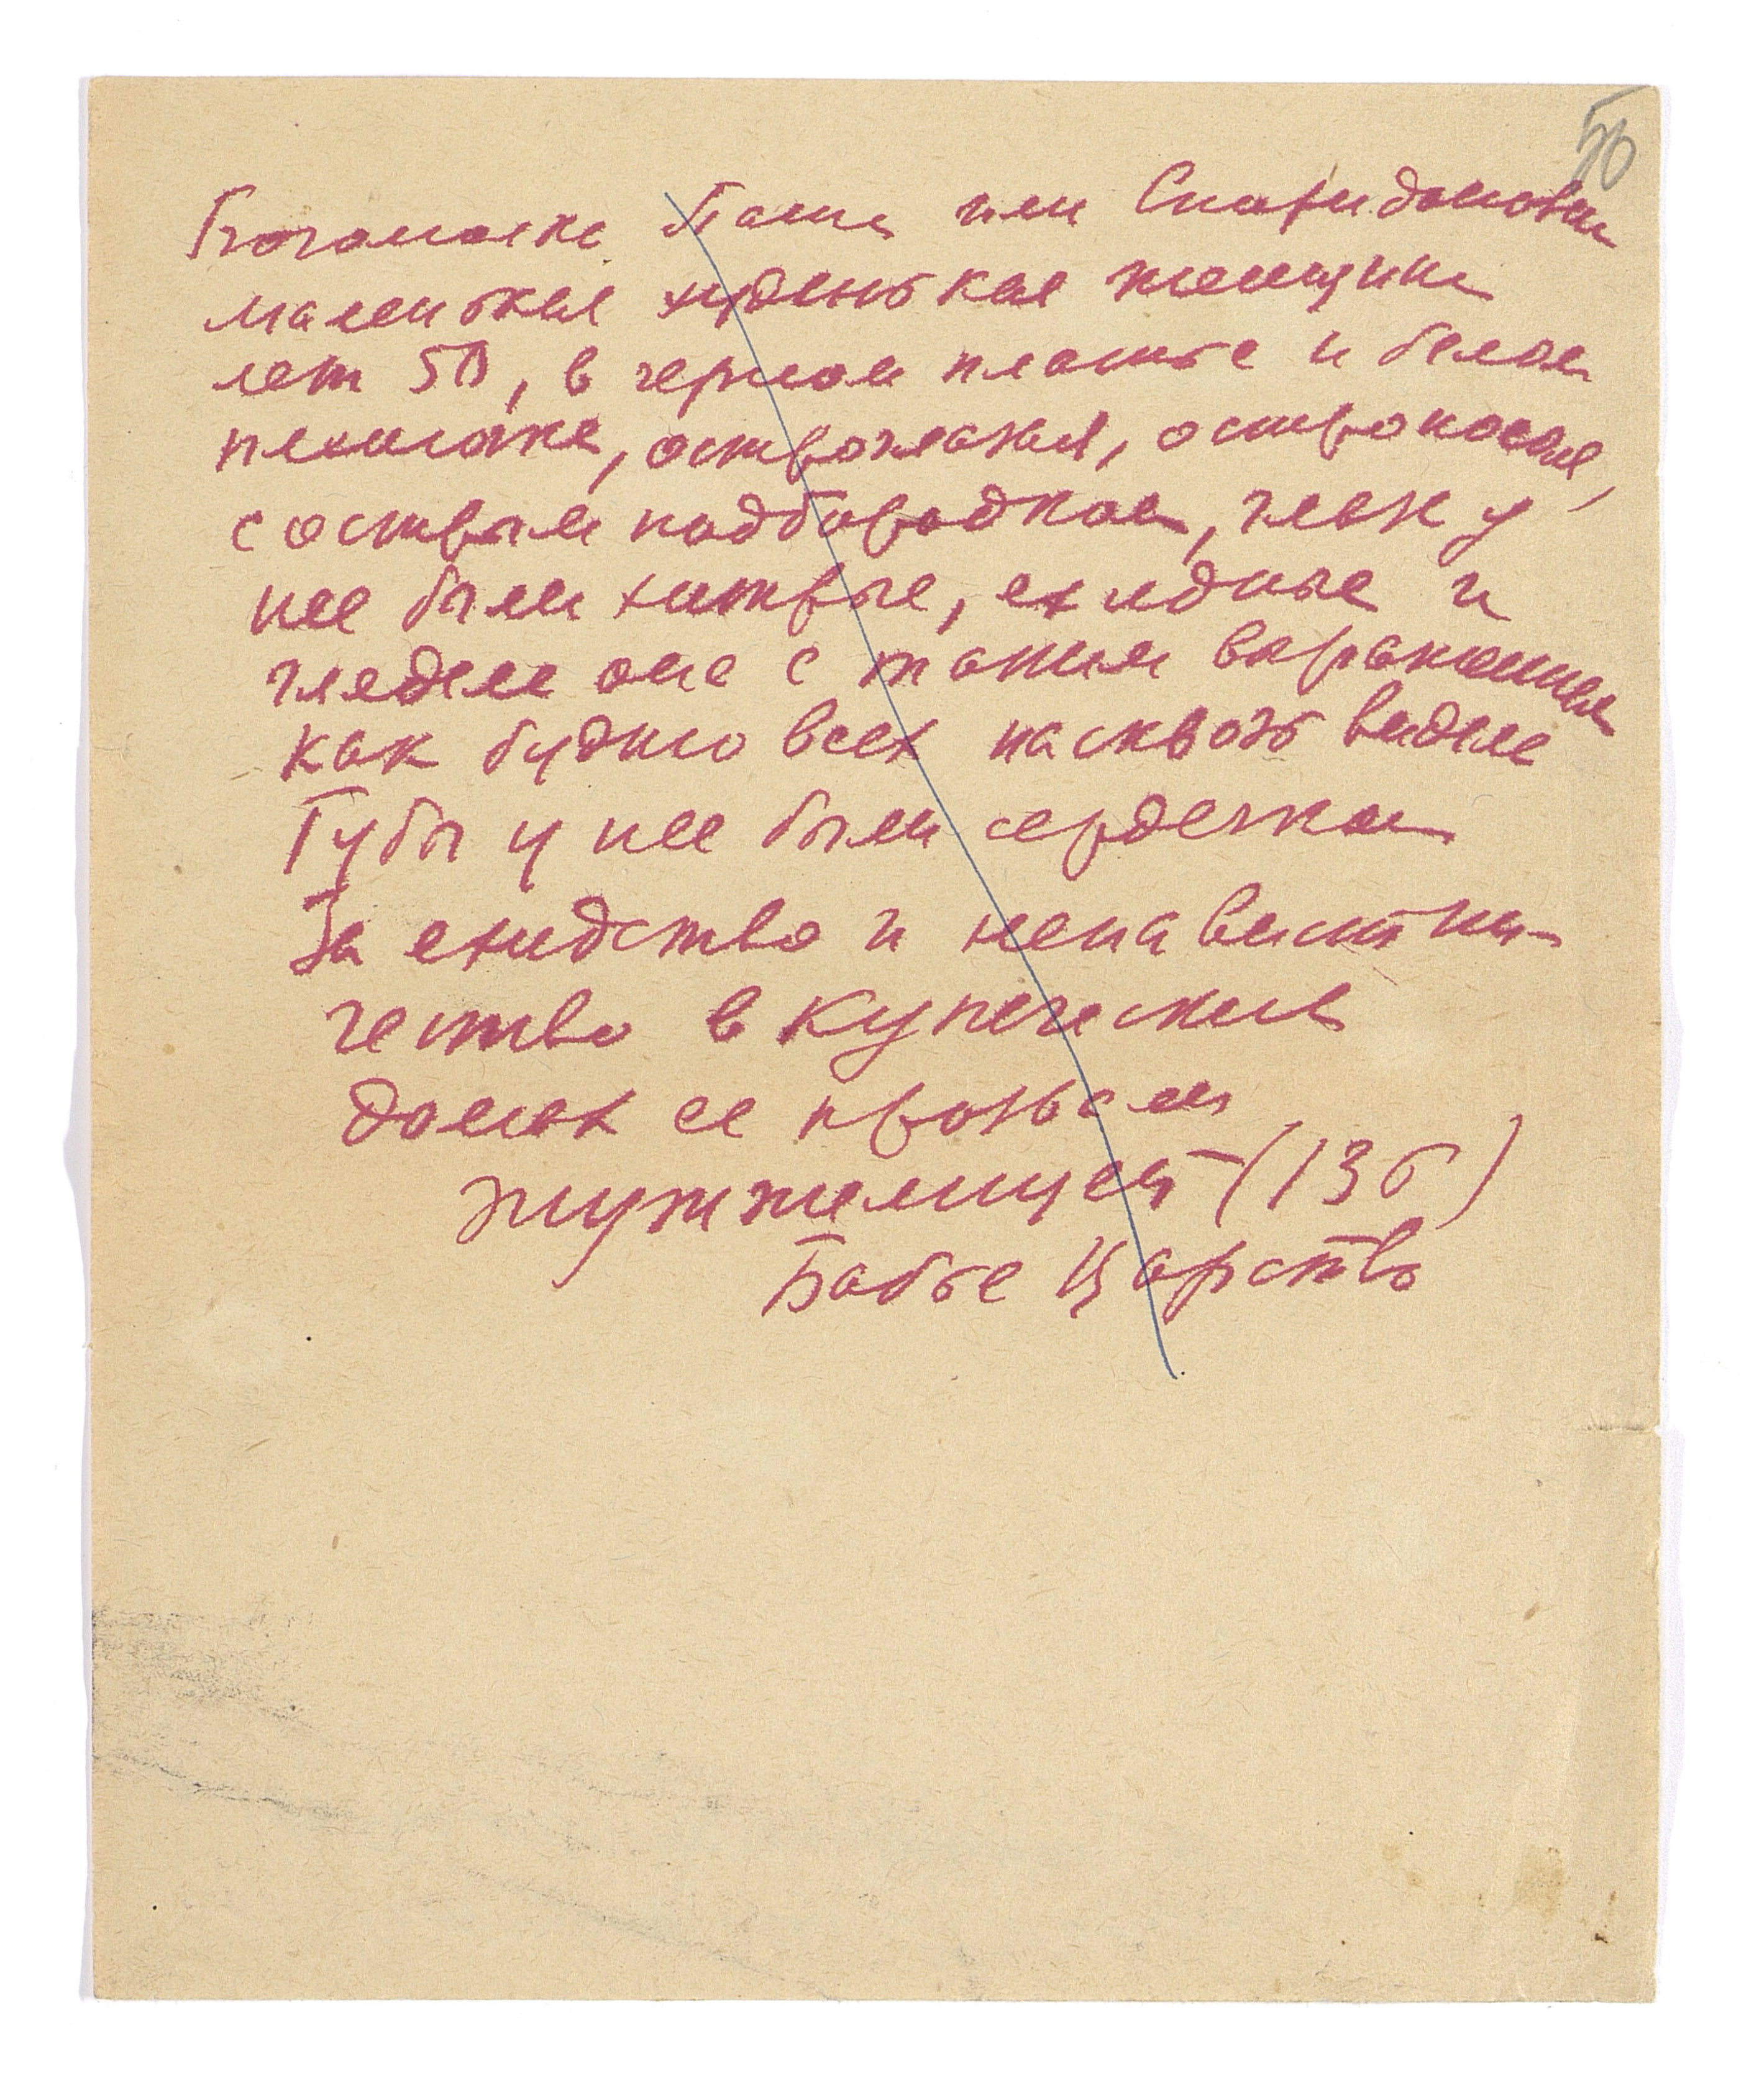 50
Богомолка Паша или Спиридоновна
маленькая худенькая женщина
лет 50, в черном платье и белом
платочке, остроглазая, остроносая,
с острым подбородком, глаза у
нее были хитрые, ехидные и
глядела она с таким выражением
как будто всех насквозь видела
Губы у нее были сердечком
За ехидство и ненавистни-
чество в купеческих
домах ее прозвали
жужжелицей (136)
Бабье Царство